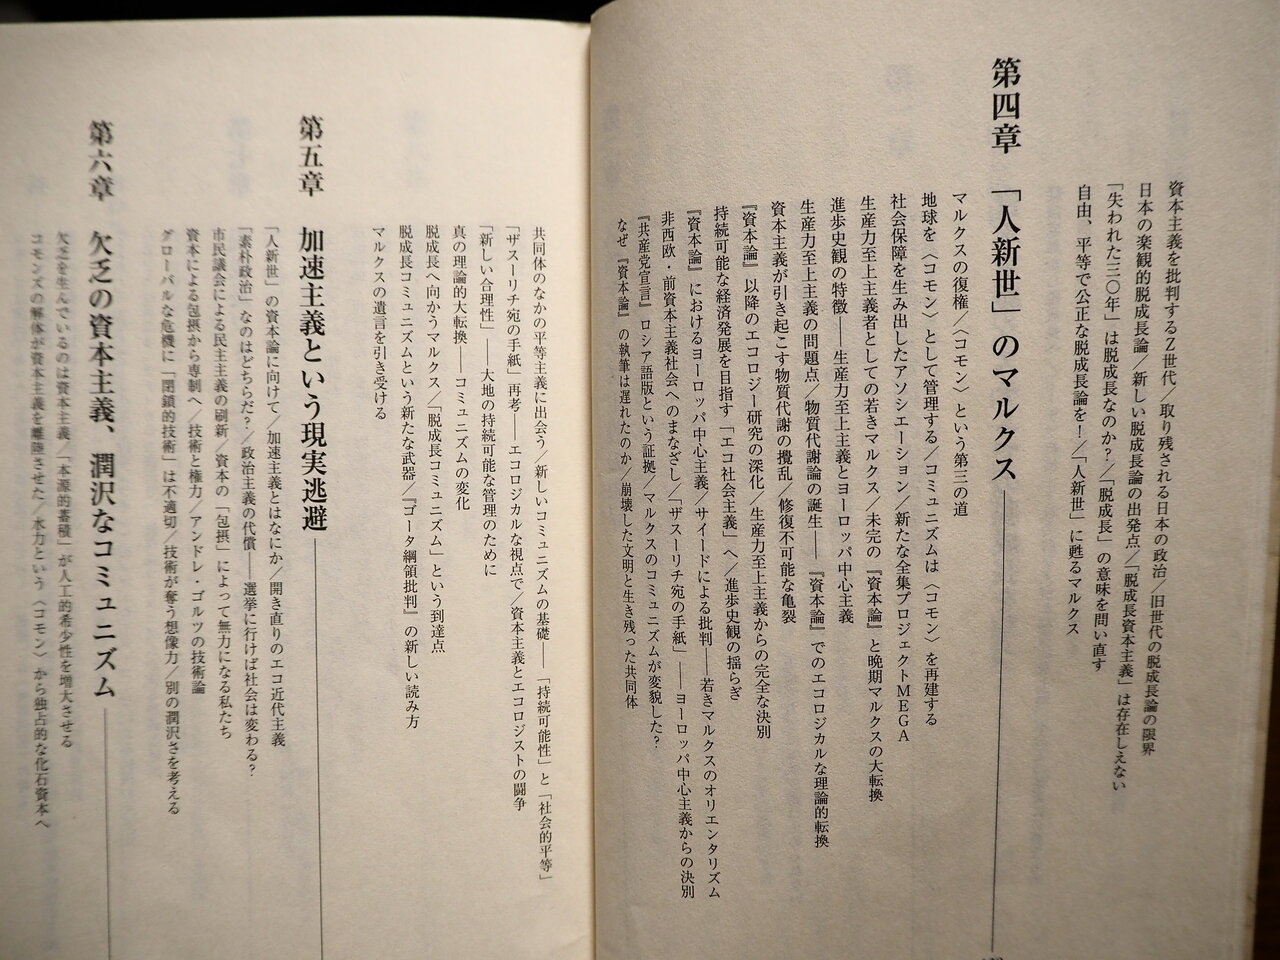 資本主義を批判するZ世代／取り残される日本の政治／旧世代の脱成長論の限界
日本の楽観的脱成長論／新しい脱成長論の出発点／「脱成長資本主義」は存在しえない
「失われた三〇年」は脱成長なのか?／「脱成長」の意味を問い直す
自由、平等で公正な脱成長論を!／「人新世」に甦るマルクス
第四章 「人新世」のマルクス
マルクスの復権／〈コモン〉という第三の道
地球を〈コモン〉として管理する／コミュニズムは〈コモン〉を再建する
社会保障を生み出したアソシエーション／新たな全集プロジェクトMEGA
生産力至上主義者としての若きマルクス／未完の『資本論』と晩期マルクスの大転換
進歩史観の特徴――生産力至上主義とヨーロッパ中心主義
生産力至上主義の問題点／物質代謝論の誕生――『資本論』でのエコロジカルな理論的転換
資本主義が引き起こす物質代謝の攪乱／修復不可能な亀裂
『資本論』以降のエコロジー研究の深化／生産力至上主義からの完全な決別
持続可能な経済発展を目指す「エコ社会主義」へ／進歩史観の揺らぎ
『資本論』におけるヨーロッパ中心主義／サイードによる批判――若きマルクスのオリエンタリズム
非西欧・前資本主義社会へのまなざし／「ザスーリチ宛の手紙」――ヨーロッパ中心主義からの決別
『共産党宣言』ロシア語版という証拠／マルクスのコミュニズムが変貌した?
なぜ『資本論』の執筆は遅れたのか／崩壊した文明と生き残った共同体
共同体のなかの平等主義に出会う／新しいコミュニズムの基礎――「持続可能性」と「社会的平等」
「ザスーリチ宛の手紙」再考――エコロジカルな視点で／資本主義とエコロジストの闘争
「新しい合理性」――大地の持続可能な管理のために
真の理論的大転換――コミュニズムの変化
脱成長へ向かうマルクス／「脱成長コミュニズム」という到達点
脱成長コミュニズムという新たな武器／『ゴータ綱領批判』の新しい読み方
マルクスの遺言を引き受ける
第五章 加速主義という現実逃避
「人新世」の資本論に向けて／加速主義とはなにか／開き直りのエコ近代主義
「素朴政治」なのはどちらだ?／政治主義の代償――選挙に行けば社会は変わる?
市民議会による民主主義の刷新／資本の「包摂」によって無力になる私たち
資本による包摂から専制へ／技術と権力／アンドレ・ゴルツの技術論
グローバルな危機に「閉鎖的技術」は不適切／技術が奪う想像力／別の潤沢さを考える
第六章 欠乏の資本主義、潤沢なコミュニズム
欠乏を生んでいるのは資本主義／「本源的蓄積」が人工的希少性を増大させる
コモンズの解体が資本主義を離陸させた／水力という〈コモン〉から独占的な化石資本へ